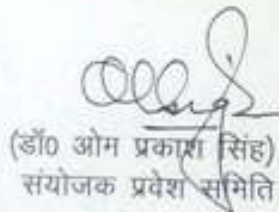 (डॉ0 ओम प्रकाश सिंह)
संयोजक प्रवेश समिति